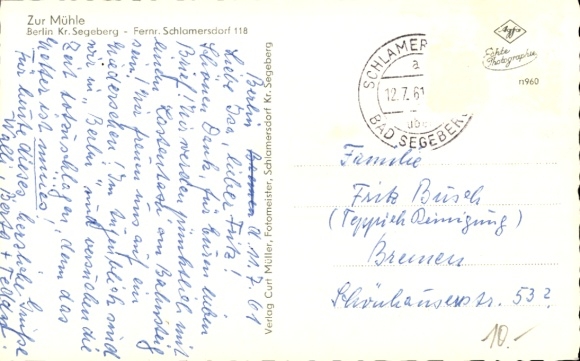 Zur Mühle
Berlin Kr. Segeberg - Fernr. Schlamersdorf 118
Berlin d. 11.7.61
Liebe Isa, lieber Fritz!
Schönen Dank, für Euren lieben
Brief! Wir werden pünktlich mit
am Bahnsteig
sein! Wir freuen uns auf ein
Wiedersehen! Im Augenblick sind
wir in Berlin und versuchen die
Zeit totzuschlagen, denn das
Wetter ist
Für heute dieses herzliche Grüße
Willi, Berta +
Verlag Curt Müller, Fotomeister, Schlamersdorf Kr. Segeberg
Agfa
Echte
Photographie
n960
SCHLAMER
a
12.7.61
übe
BAD SEGEBER
Familie
Fritz Busch
(Teppich Reinigung)
Bremen
Schönhauserstr. 53?
10.-